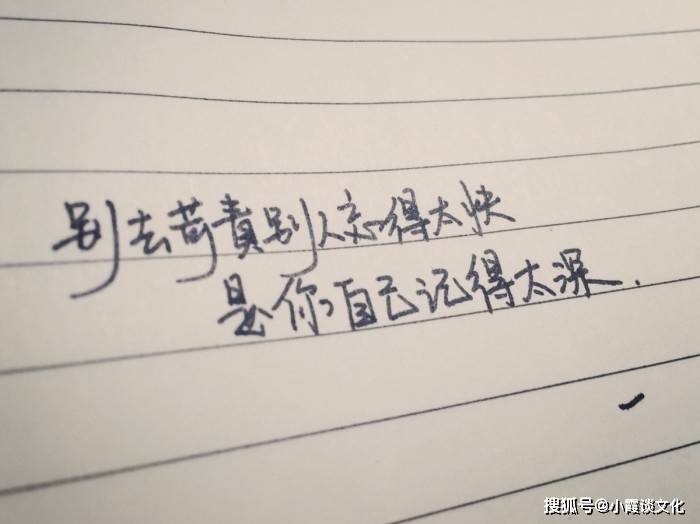 别去苛责别人忘得太快
是你自己记得太深.
搜狐号@小霞谈文化